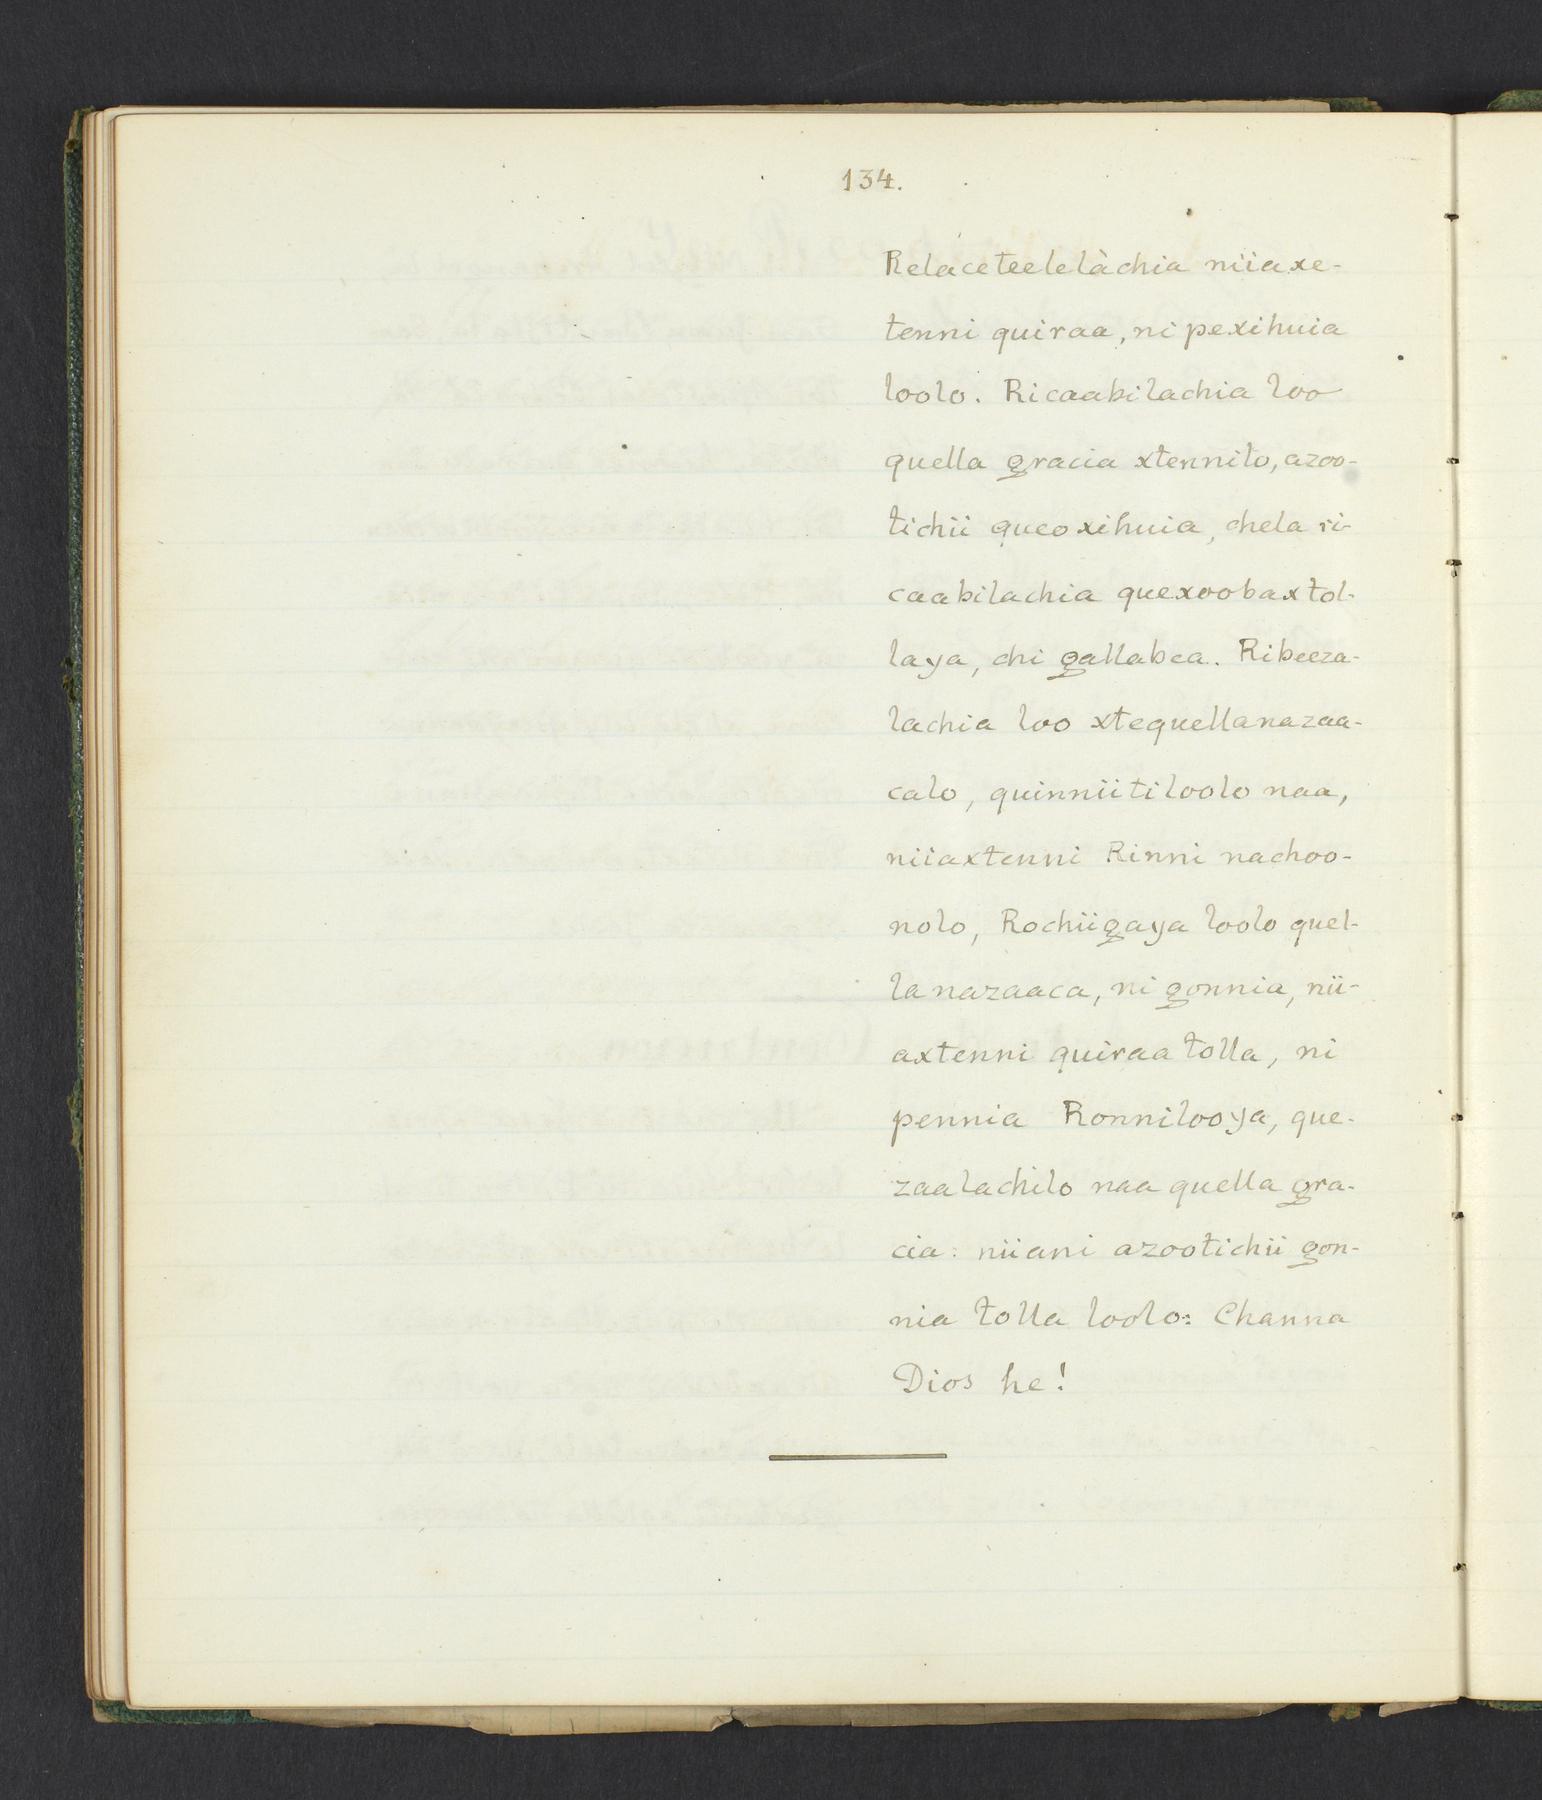 134.
Relaceteelelàchia niiaxe-
tenni quiraa, ni pexihuia
loolo. Ricaabilachia loo
quella gracia xtennilo, azoo-
tichii queo xihuia, chela ri-
caabilachia quexoobaxtol-
laya, chi gallabea. Ribeeza-
lachia loo xtequellanazaa-
calo, quinniitiloolo naa,
niiaxtenni Rinni nachoo-
nolo, Rochiigaya loolo quel-
la nazaaca, ni gonnia, nii-
axtenni quiraa tolla, ni
pennia Ronnilooya, que-
zaalachilo naa quella gra-
cia: niiani azootichii gon-
nia tolla loolo: Channa
Dios he!